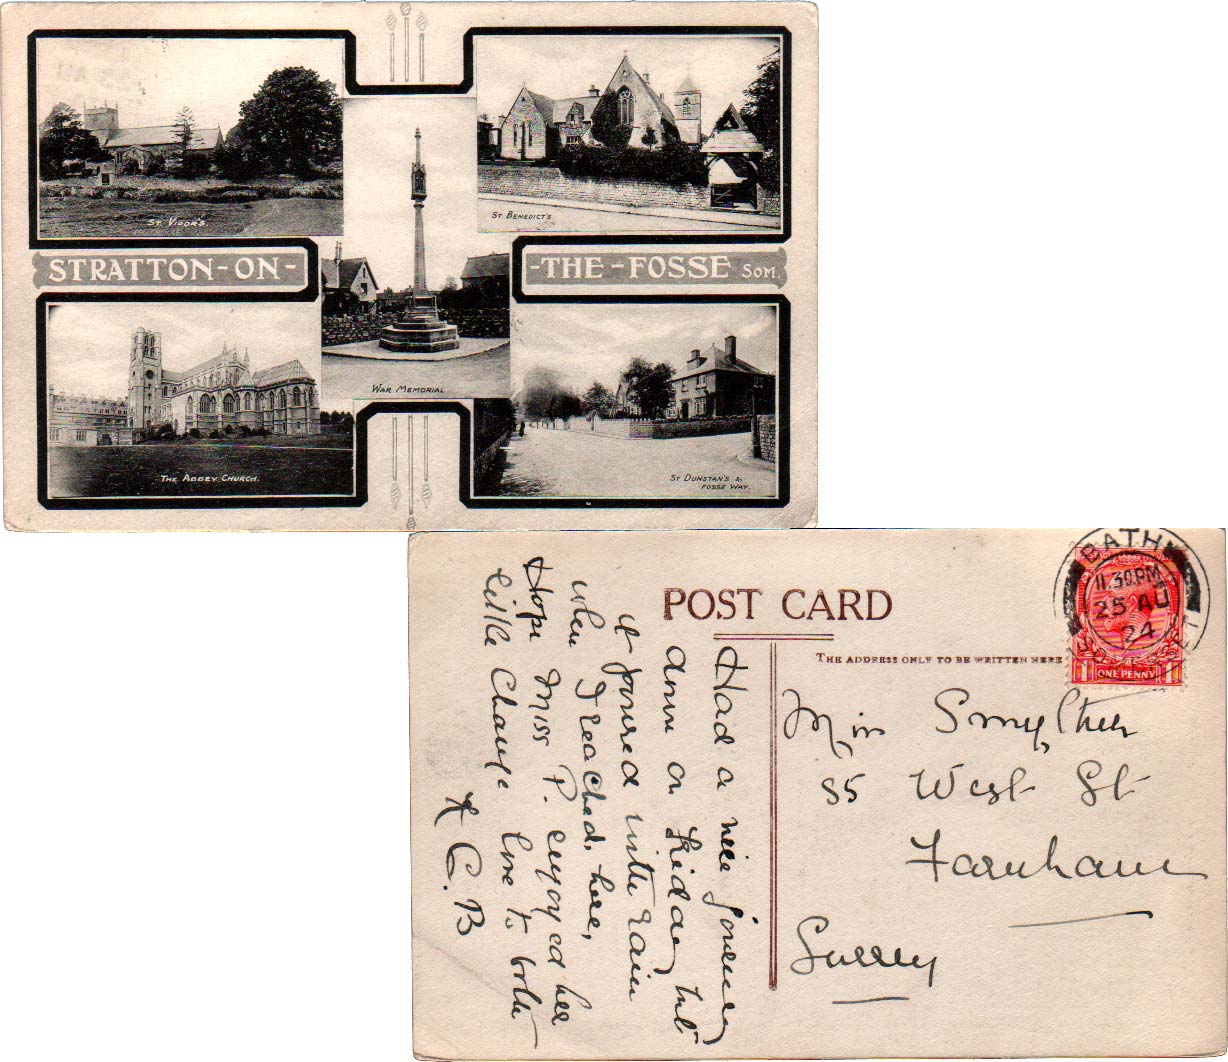 ST VIGOR'S.
ST BENEDICT'S
STRATTON-ON-
-THE-FOSSE SOM.
WAR MEMORIAL
THE ABBEY CHURCH.
ST DUNSTAN'S &
FOSSE WAY.
POST CARD
THE ADDRESS ONLY TO BE WRITTEN HERE
BATH
11.30PM
25 AU
24
SOMERSET
ONE PENNY
Miss Smyther
85 West St
Farnham
Surrey
Had a nice journey
down on Friday but
it poured with rain
when I reached here,
Hope Miss P. enjoyed her
little change love to both
K C.B